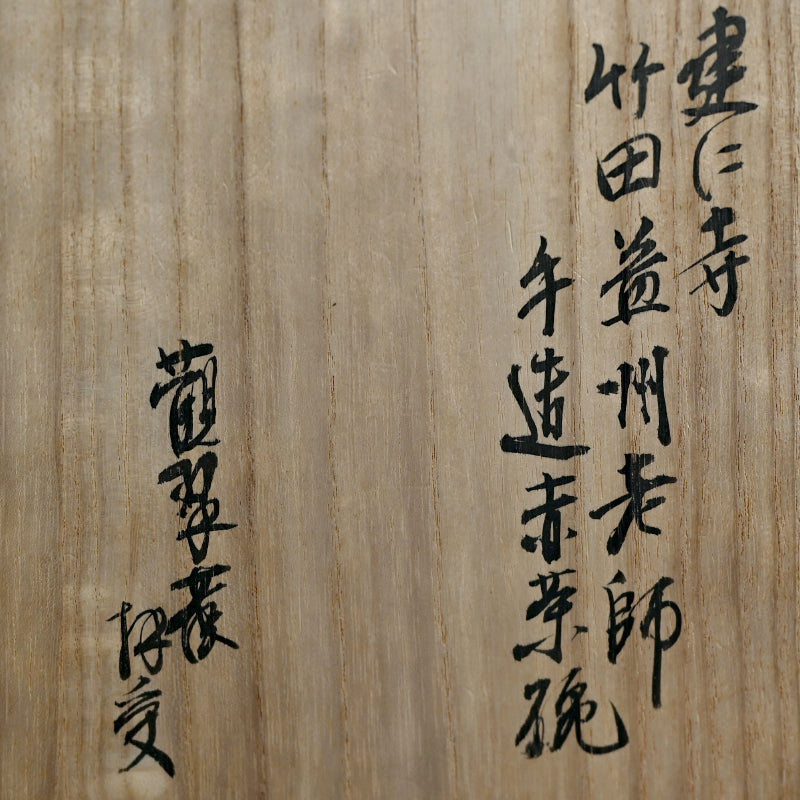 建仁寺
竹田益州老師
手造赤茶碗
観翠叢
拝受